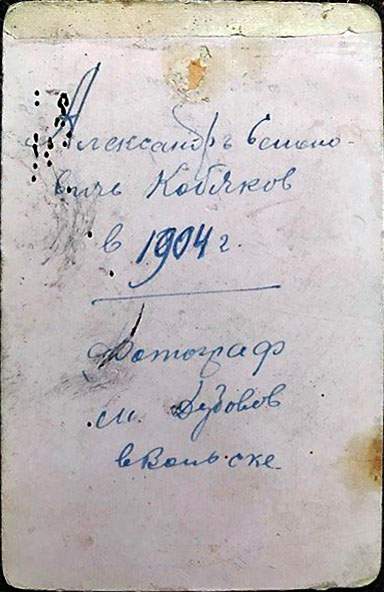 Александръ Семено-
вичь Кобяков
в 1904 г.
Фотограф
м. Дубовов
в Вольске